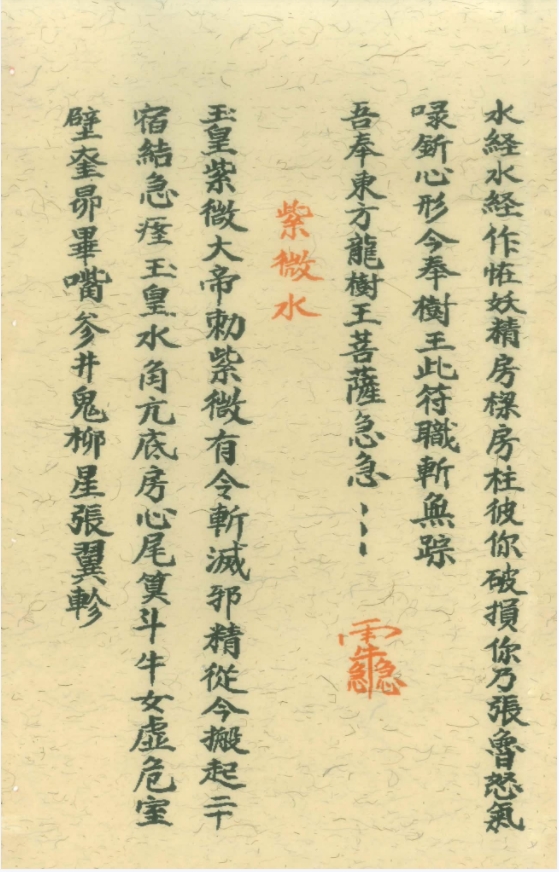 水経水経作怪妖精房樑房柱彼你破損你乃張魯怒氣
嗓斩心形今奉樹王此符職斬無踪
吾奉東方龍樹王菩薩急急
紫微水
玉皇紫微大帝勅紫微有令斬滅邪精從今搬起二十
宿結急痊玉皇水角亢底房心尾箕斗牛女虛危室
壁奎昴畢嘴參井鬼柳星張翼軫